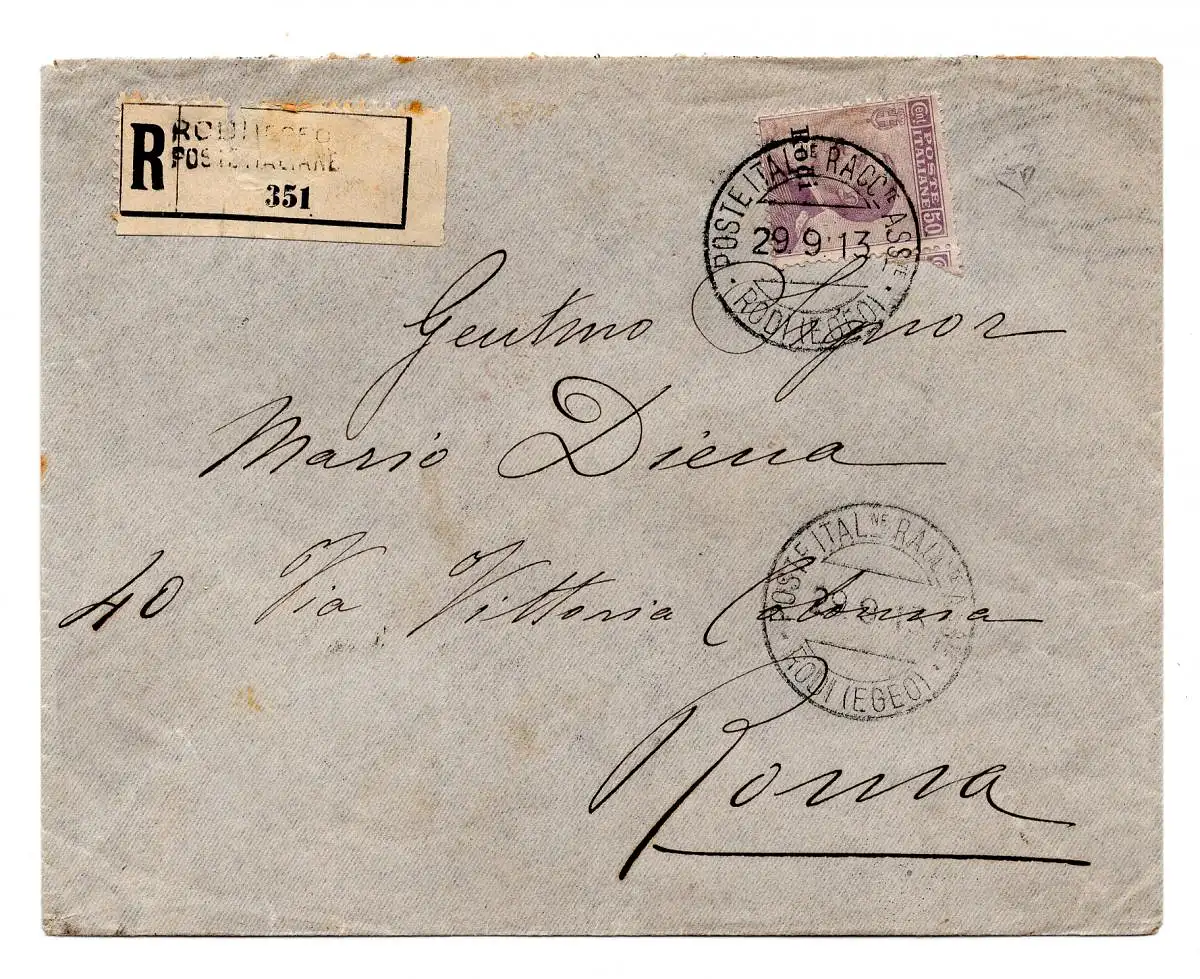 R RODI (EGEO)
POSTE ITALIANE
351
Rodi
Cent 50
POSTE ITALIANE
POSTE ITAL.NE RACC.TE ASS.TE
29 9 13
RODI (EGEO)
Gentmo Signor
Mario Diena
40 Via Vittoria Colonna
Roma
POSTE ITAL.NE RACC.TE ASS.TE
29 9 13
RODI (EGEO)